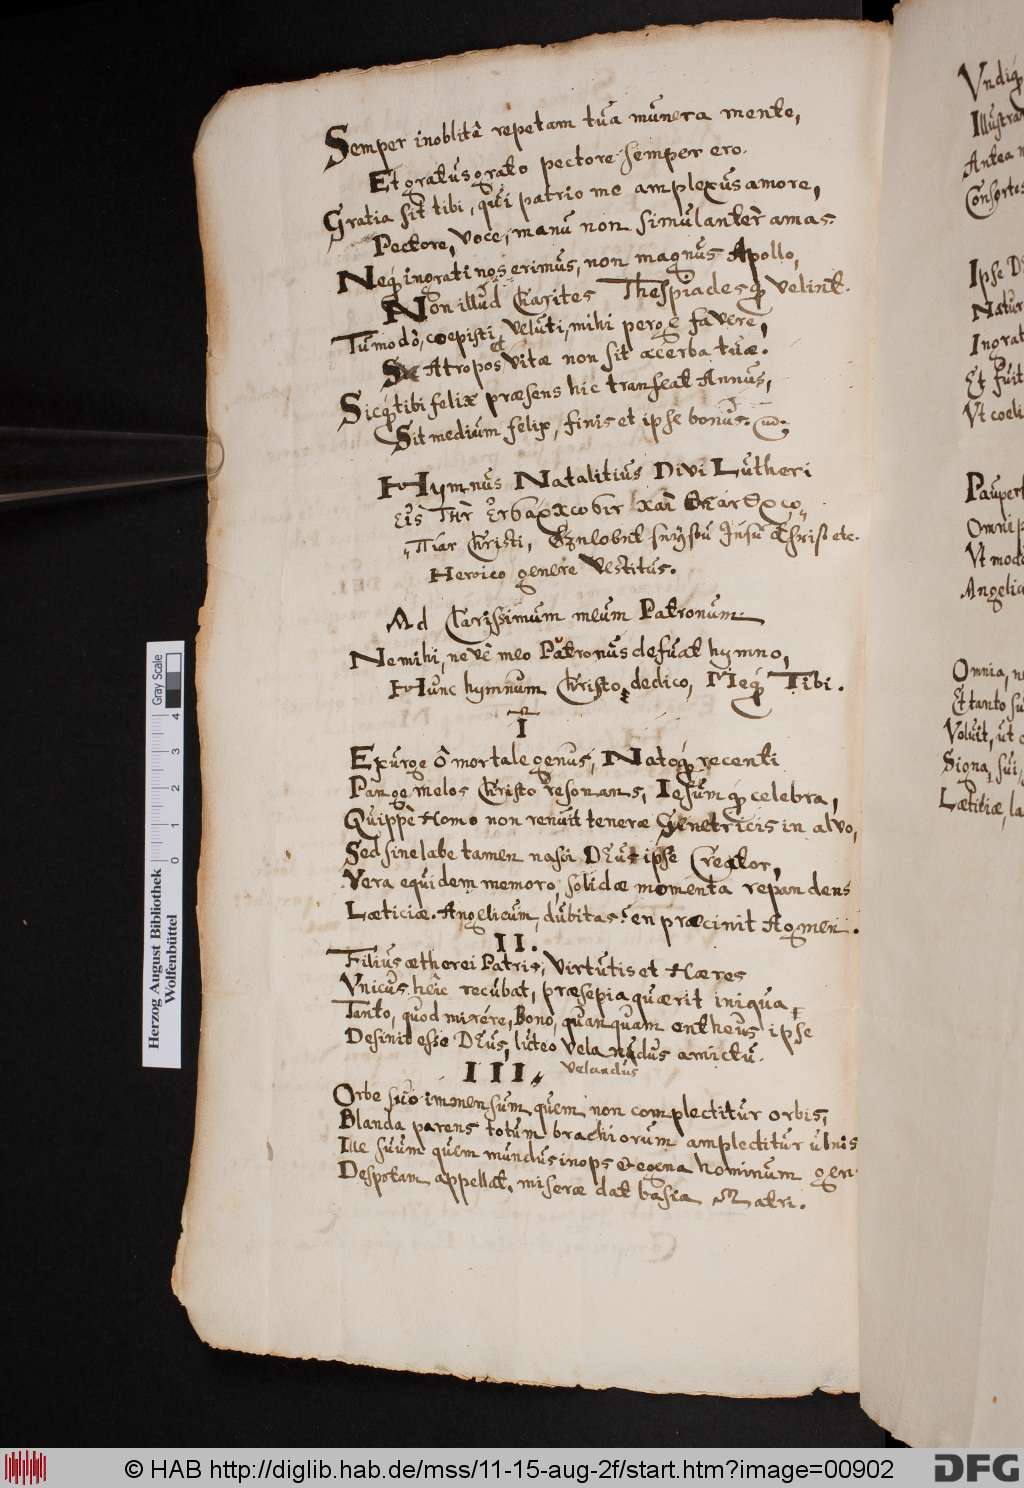 Semper inoblitâ repetam tua munera mente,
Et gratus grato pectore semper ero.
Gratia sit tibi, qui patrio me amplexus amore,
Pectore, voce, manu non simulanter amas
Neq́ ingrati nos erimus, non magnus Apollo,
Non illud Charites Thespiadesq́ velint.
Tu modò, coepisti veluti, mihi perge favere,
et
Atropos vitæ non sit acerba tuæ.
Sicq́ tibi felix præsens hic transeat Annus,
Sit medium felix, finis et ipse bonus.
Hymnus Natalitius Divi Lutheri
Christi,
Heroico genere vestitus.
Ad Charissimum meum Patronum
Ne mihi, nevè meo Patronus defuat hymno,
Hunc hymnum Christo, dedico, Meq́ Tibi.
I
Expurge ô mortale genus, Natoq́ recenti
Pange melos Christo resonans, Iesumq́ celebra,
Quippè Homo non renuit teneræ Genetricis in alvo,
Sed sine labe tamen nasci Deus ipse Creator,
Vera equidem memoro, solidæ momenta repandens
Læticiæ. Angelicum, dubitas? en præcinit Agmen.
II.
Filius ætherei Patris, virtutis et Hæres
Unicus heic recubat, præsepia quærit iniqua
Tanto, quod mirére, Bono, quanquam entheus ipse
Desinit esse Deus, luteo vela nudus amictu.
velandus
III.
Orbe suo immensum quem non complectitur orbis,
Blanda parens totum brachiorum amplectitur ulnis
Ille suum quem mundus inops et egena hominum gen.
Despotam appellat, miseræ dat basia Matri.
Undiq́
Illustra
Antea
Consortes
Ipse
Natur
Ingrat
Et fuit
Ut coeli
Paupert
Omnip
Ut modo
Angelic
Omnia,
Et tanto
Voluit, ut
Signa, sui
Lætitiæ, la
Herzog August Bibliothek
Wolfenbüttel
0 1 2 3 4
Gray Scale
© HAB http://diglib.hab.de/mss/11-15-aug-2f/start.htm?image=00902
DFG